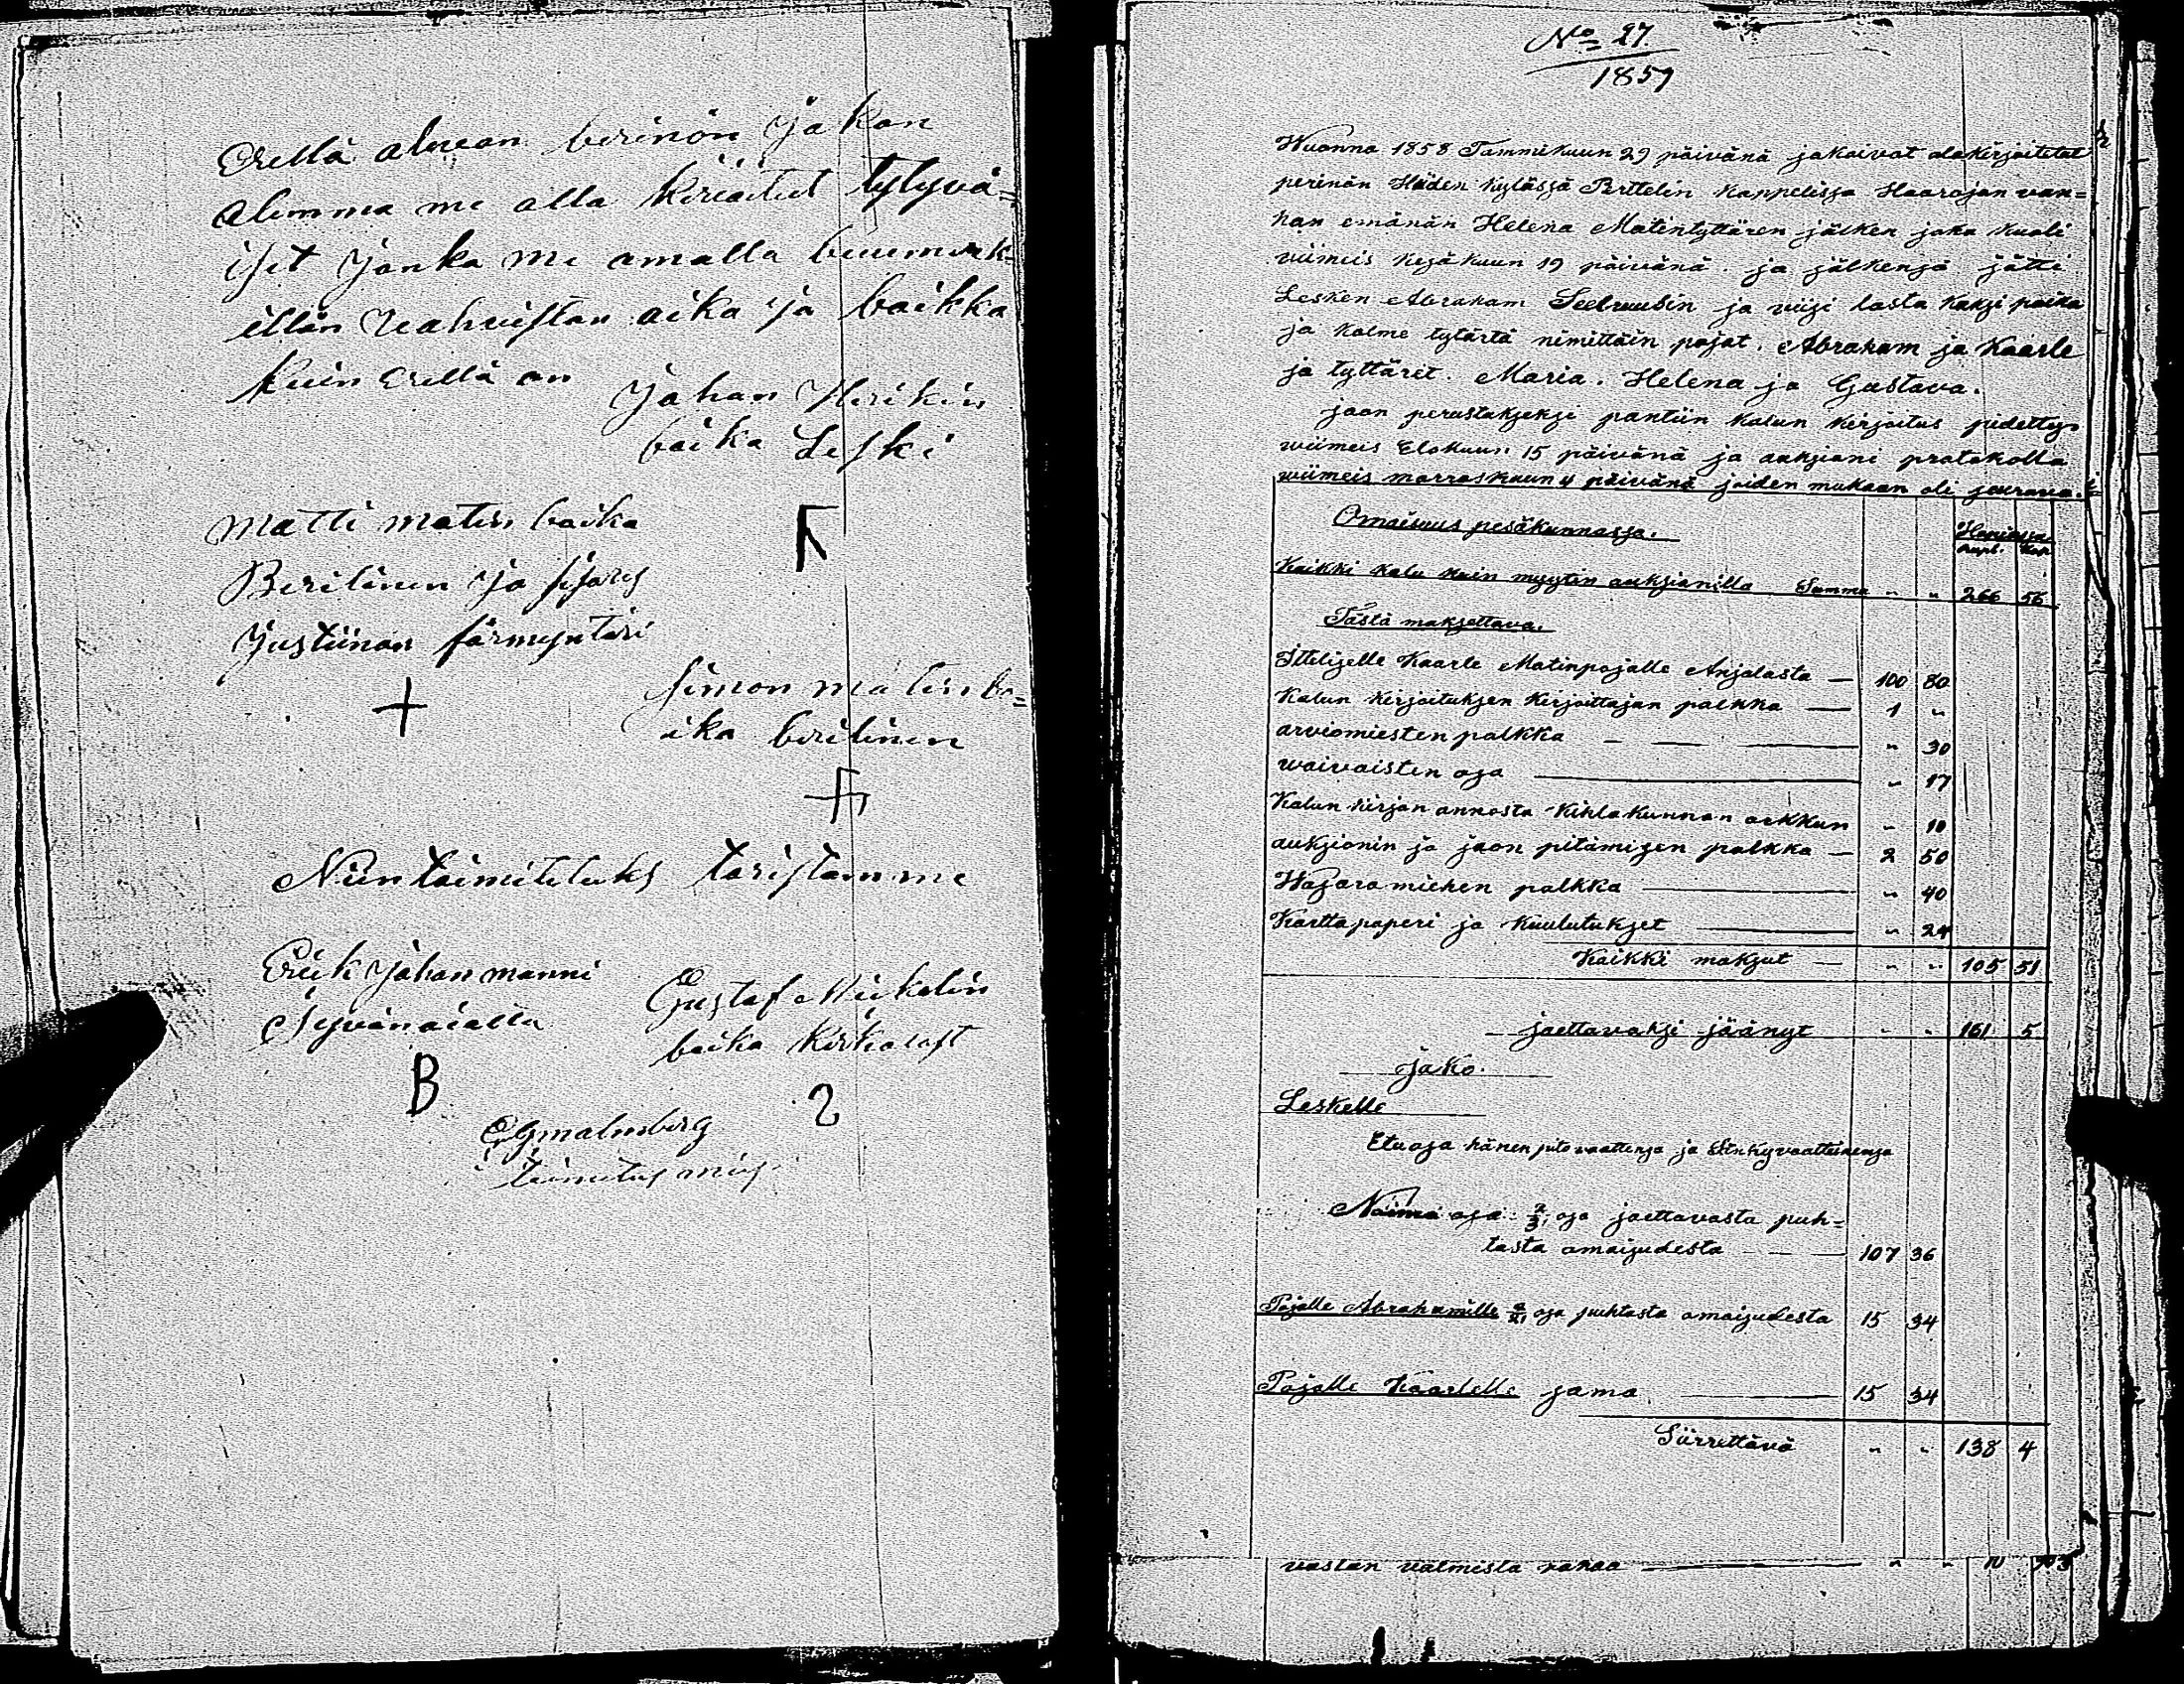 Erellä olevan berinön jakon
Olemma me alla kirioitut tytyvä=
iset jonka me omalla buumerk=
illän vahvistan aika ja baikka
kuin erellä on
Johan Herikin
boika Leski
Matti matin boika
Berilinen ja sisares
Justiinan förmyntäri
Simon matin bo=
ika berilinen
Niin toimitetuks toristamme
Erik Johan manni
Syvänaialla
Gustaf Mickelin
boika Kirkolast
B
EGmalmberg
toimitus mies
No 27
1857
Wuonna 1858 Tammikuun 29 päivänä jakoivat alakirjoitetut
perinön Hiiden kylässä Perttelin kappelissa Haarajan van=
han emänän Helena Matintyttären jälken joka kuoli
viimeis kesäkuun 19 päivänä. ja jälkensä jätti
Lesken Abraham Seelruusin ja viisi lasta kaksi poika
ja kolme tytärtä nimittäin pojat. Abraham ja Kaarle
ja tyttäret. Maria. Helena ja Gustava.
jaon perustukseksi pantiin kalun kirjoitus pidetty
wiimeis Elokuun 15 päivänä ja auksioni protokolla
wiimeis marraskuun 4 päivänä joiden mukaan oli seurava.
Omaisuus pesäkunnassa. Hopiassa
Rupl. Kop
Kaikki kalu kuin myytin auksionilla Summa " " 266 56
Tästä maksettava.
Ittelizelle Kaarle Matinpojalle Anjalasta — 100 80
Kalun kirjoituksen kirjoittajan palkka — 1 "
arviomiesten palkka — " 30
waivaisten osa — " 17
Kalun kirjan annosta Kihlakunnan arkkun " 10
auksionin ja jaon pitämisen palkka — 2 50
Wasaramiehen palkka — " 40
Karttapaperi ja kuulutukset — " 24
Kaikki maksut — " " 105 51
jaettavaksi jäänyt " " 161 5
jako.
Leskelle
Etuosa hänen pitovaattensa ja Sänkyvaatteinensa
Naima osa: 2/3 osa jaettavasta puh=
tasta omaisudesta — 107 36
Pojalle Abrahamille 2/21 osa puhtasta omaisudesta 15 34
Pojalle Kaarlelle sama — 15 34
Siirrettävä " " 138 4
vastan valmista rahaa — " " 10